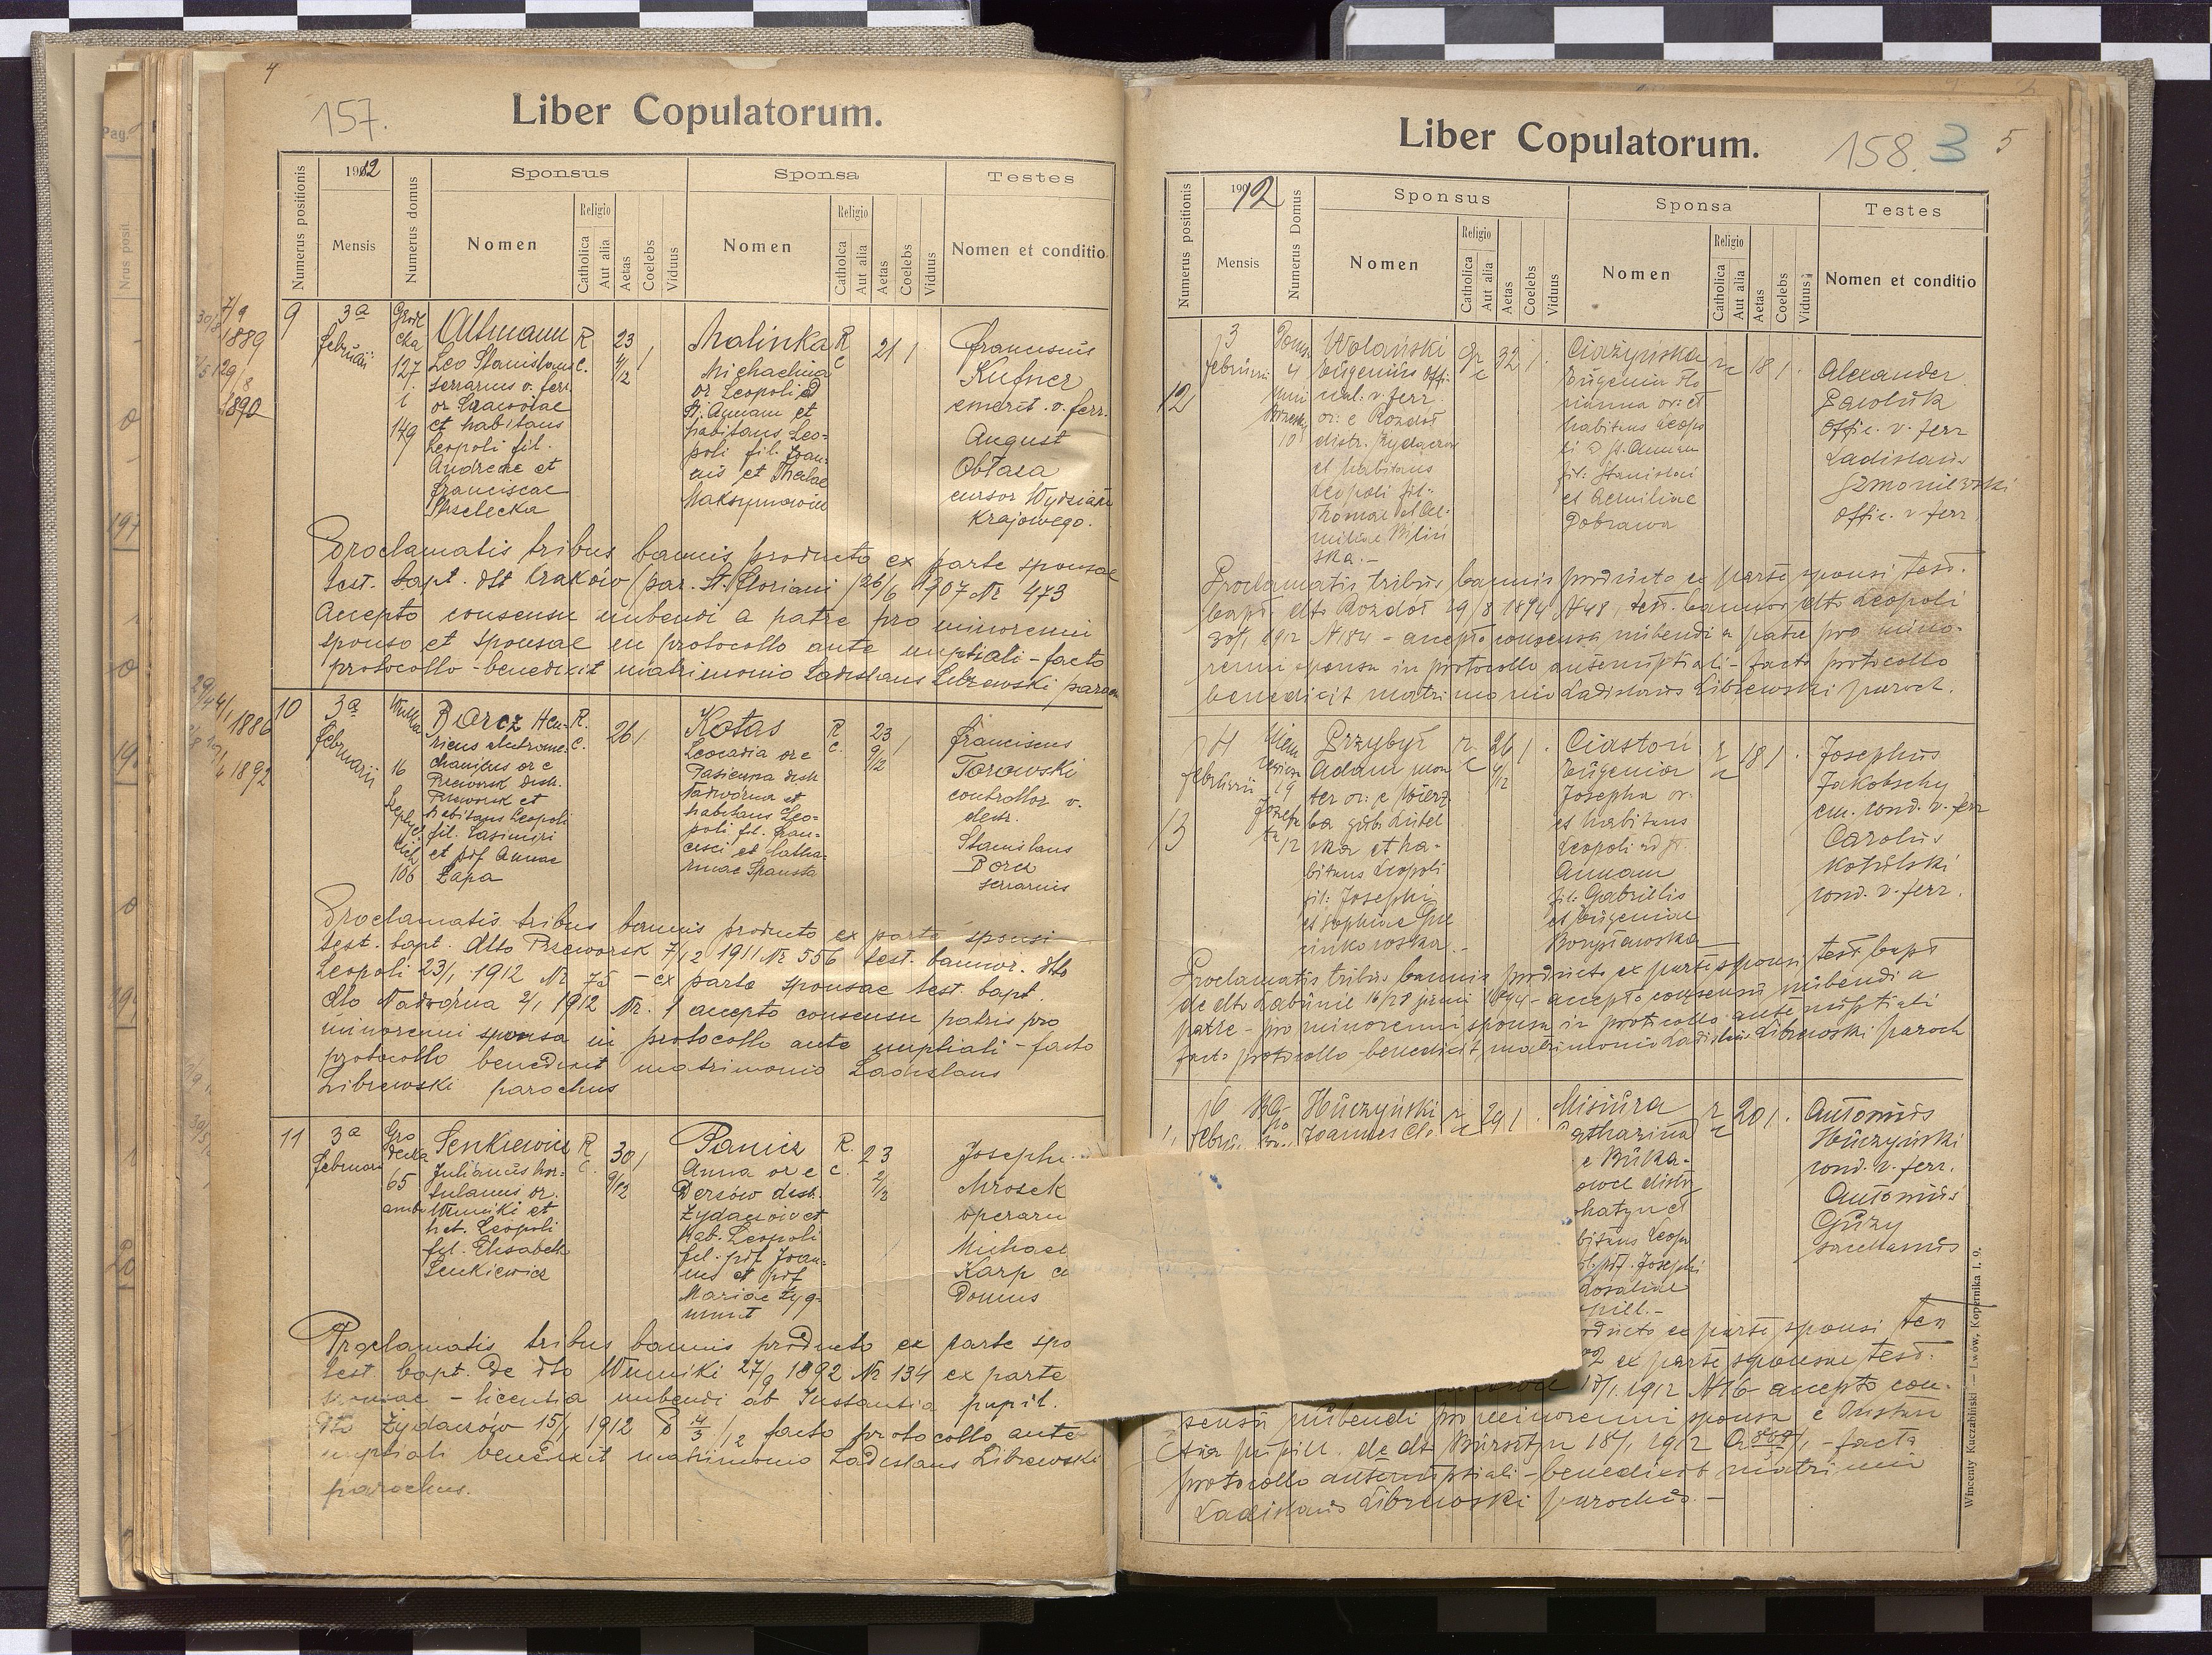 4
157.
Liber Copulatorum.
Numerus positionis
1912
Mensis
Numerus domus
Sponsus
Nomen
Religio
Catholica
Aut alia
Aetas
Coelebs
Viduus
Sponsa
Nomen
Religio
Catholca
Aut alia
Aetas
Coelebs
Viduus
Testes
Nomen et conditio
7/9
1889
29/8
1890
9
3a
februarii
127
149
Altmann
Leo Stanislaus
serrarius v. ferr
or Cracoviae
et habitans
Leopoli fil.
Andreae et
Franciscae
R
C.
23
4/12
1
Malinka
Michaelina
or Leopoli ad
St. Annam et
habitans Leo-
poli fil. Joan-
nis et Theclae
Maksymowicz
R
C
21 1
Franciscus
Kufner
emerit. v. ferr.
August
Obtaca
cursor Wydziału
Krajowego.
Proclamatis tribus bannis producto ex parte sponsae
test. bapt. dtt Kraków (par. St. Floriani) 26/6 1907 Nr 473
Accepto consensu nubendi a patre pro minorenni
sponso et sponsae in protocollo ante nuptiali - facto
protocollo - benedixit matrimonio Ladislaus Librewski paroch
1886
1892
10
3a
februarii
Wulka
16
106
Borcz Hen-
ricus electrome-
chanicus or e
Przeworsk distr.
Przeworsk et
habitans Leopoli
fil. Casimiri
et pdf Annae
Łapa
R.
C.
26 1
Kotas
Leocadia or e
Pasieczna distr.
Nadwórna et
habitans Leo-
poli fil. Fran-
cisci et Catha-
rinae Spausta
R
C.
23
9/12
1
Franciscus
Torowski
controllor v.
Stanislaus
Borcz
serrarius
Proclamatis tribus bannis producto ex parte sponsi
test. bapt. dtto Przeworsk 7/12 1911 Nr 556 test. bannor. dtto
Leopoli 23/1 1912 Nr 75 - ex parte sponsae test. bapt.
dto Nadwórna 2/1 1912 Nr. 1 accepto consensu patris pro
minorenni sponsa in protocollo ante nuptiali - facto
protocollo benedixit matrimonio Ladislaus
Librewski parochus
11
3a
februarii
Gro
decka
65
Senkiewicz
Julianus hor-
tulanus or.
Winniki et
hab. Leopoli
fil. Elisabeth
Senkiewicz
R
C.
30 1
9/12
Panicz
Anna or e
Derżów distr.
Żydaczów et
hab. Leopoli
fil. pdf Joan-
nis et pdf
Mariae Zyg-
munt
R.
C.
23
2/12
Josephu
Mrosek
operariu
Michael
Karp
Domus
Proclamatis tribus bannis producto ex parte spo
test. bapt. de dto Winniki 27/9 1892 Nr 134 ex parte
sponsae - licentia nubendi ab Instantia pupil.
dto Żydaczów 15/1 1912 P 4/3 /12 facto protocollo ante
nuptiali benedixit matrimonio Ladislaus Librewski
parochus.
Liber Copulatorum.
158. 3 5
Numerus positionis
1912
Mensis
Numerus Domus
Sponsus
Nomen
Religio
Catholica
Aut alia
Aetas
Coelebs
Viduus
Sponsa
Nomen
Religio
Catholica
Aut alia
Aetas
Coelebs
Viduus
Testes
Nomen et conditio
12
3
februarii
4
10
Wolański
Eugenius offi-
cial. v. ferr.
or: e Rozdół
distr. Żydaczów
et habitans
Leopoli fil:
Thomae et Ae-
miliae Biliń
ska.-
gr
c
32 1.
Ciążyńska
Eugenia Flo
rianna or: et
habitans Leopo
li a St. Annam
fil: Stanislai
et Aemiliae
Dobrawa
r
c
18 1.
Alexander
Pawluk
Offic. v. ferr
Ladislaus
Szmoniewski
Offic. v ferr.
Proclamatis tribus bannis producto ex parte sponsi test.
bapt. dto Rozdół 29/8 1894 N 48, test. bannor. dto Leopoli
30/1 1912 N 184 - accepto consensu nubendi a patre pro mino-
renni sponsa in protocollo antenuptiali - facto protocollo
benedixit matrimonio Ladislaus Librewski paroch.
13
februarii
19
12
Przybył
Adam mon
ter or: e Wierz
ba gub. Lubel
ska et ha-
bitans Leopoli
fil: Josephi
et Sophiae
r
c
26 1.
4/12
Ciastoń
Eugenia
Josepha or.
et habitans
Leopoli ad St.
Annam
fil: Gabrielis
et Eugeniae
Borysławska
r
c
18 1.
Josephus
Jakobschy
em. cond. v. ferr
Carolus
Kotulski
cond. v. ferr.
Proclamatis tribus bannis producto ex parte sponsi test bapt
de dto Łabunie 16/28 junii 1894 - accepto consensu nubendi a
patre - pro minorenni sponsa in protocollo ante nuptiali
facto protocollo - benedixit matrimonio Ladislaus Librewski paroch
Huczyński
Joannes
r
c
29 1.
Misiura
Catharina
e Buka-
owce distr
hatyn et
bitans Leopo
l. pdf. Josephi
Rosaliae
r
c
20 1.
Antonius
Huczyński
cond. v. ferr.
Antonius
Guzy
sacellanus
oducto ex parte sponsi tes
ex parte sponsae test.
17/1 1912 N 16 accepto con-
sensu nubendi pro minorenni sponsa e Instan
tia pupill. de dto Bursztyn 18/1 1912 - facto
protocollo antenuptiali - benedixit matrimonio
Ladislaus Librewski parochus.-
Wincenty Kuczabiński — Lwów, Kopernika l. 9.
Pag.
Nrus posit.